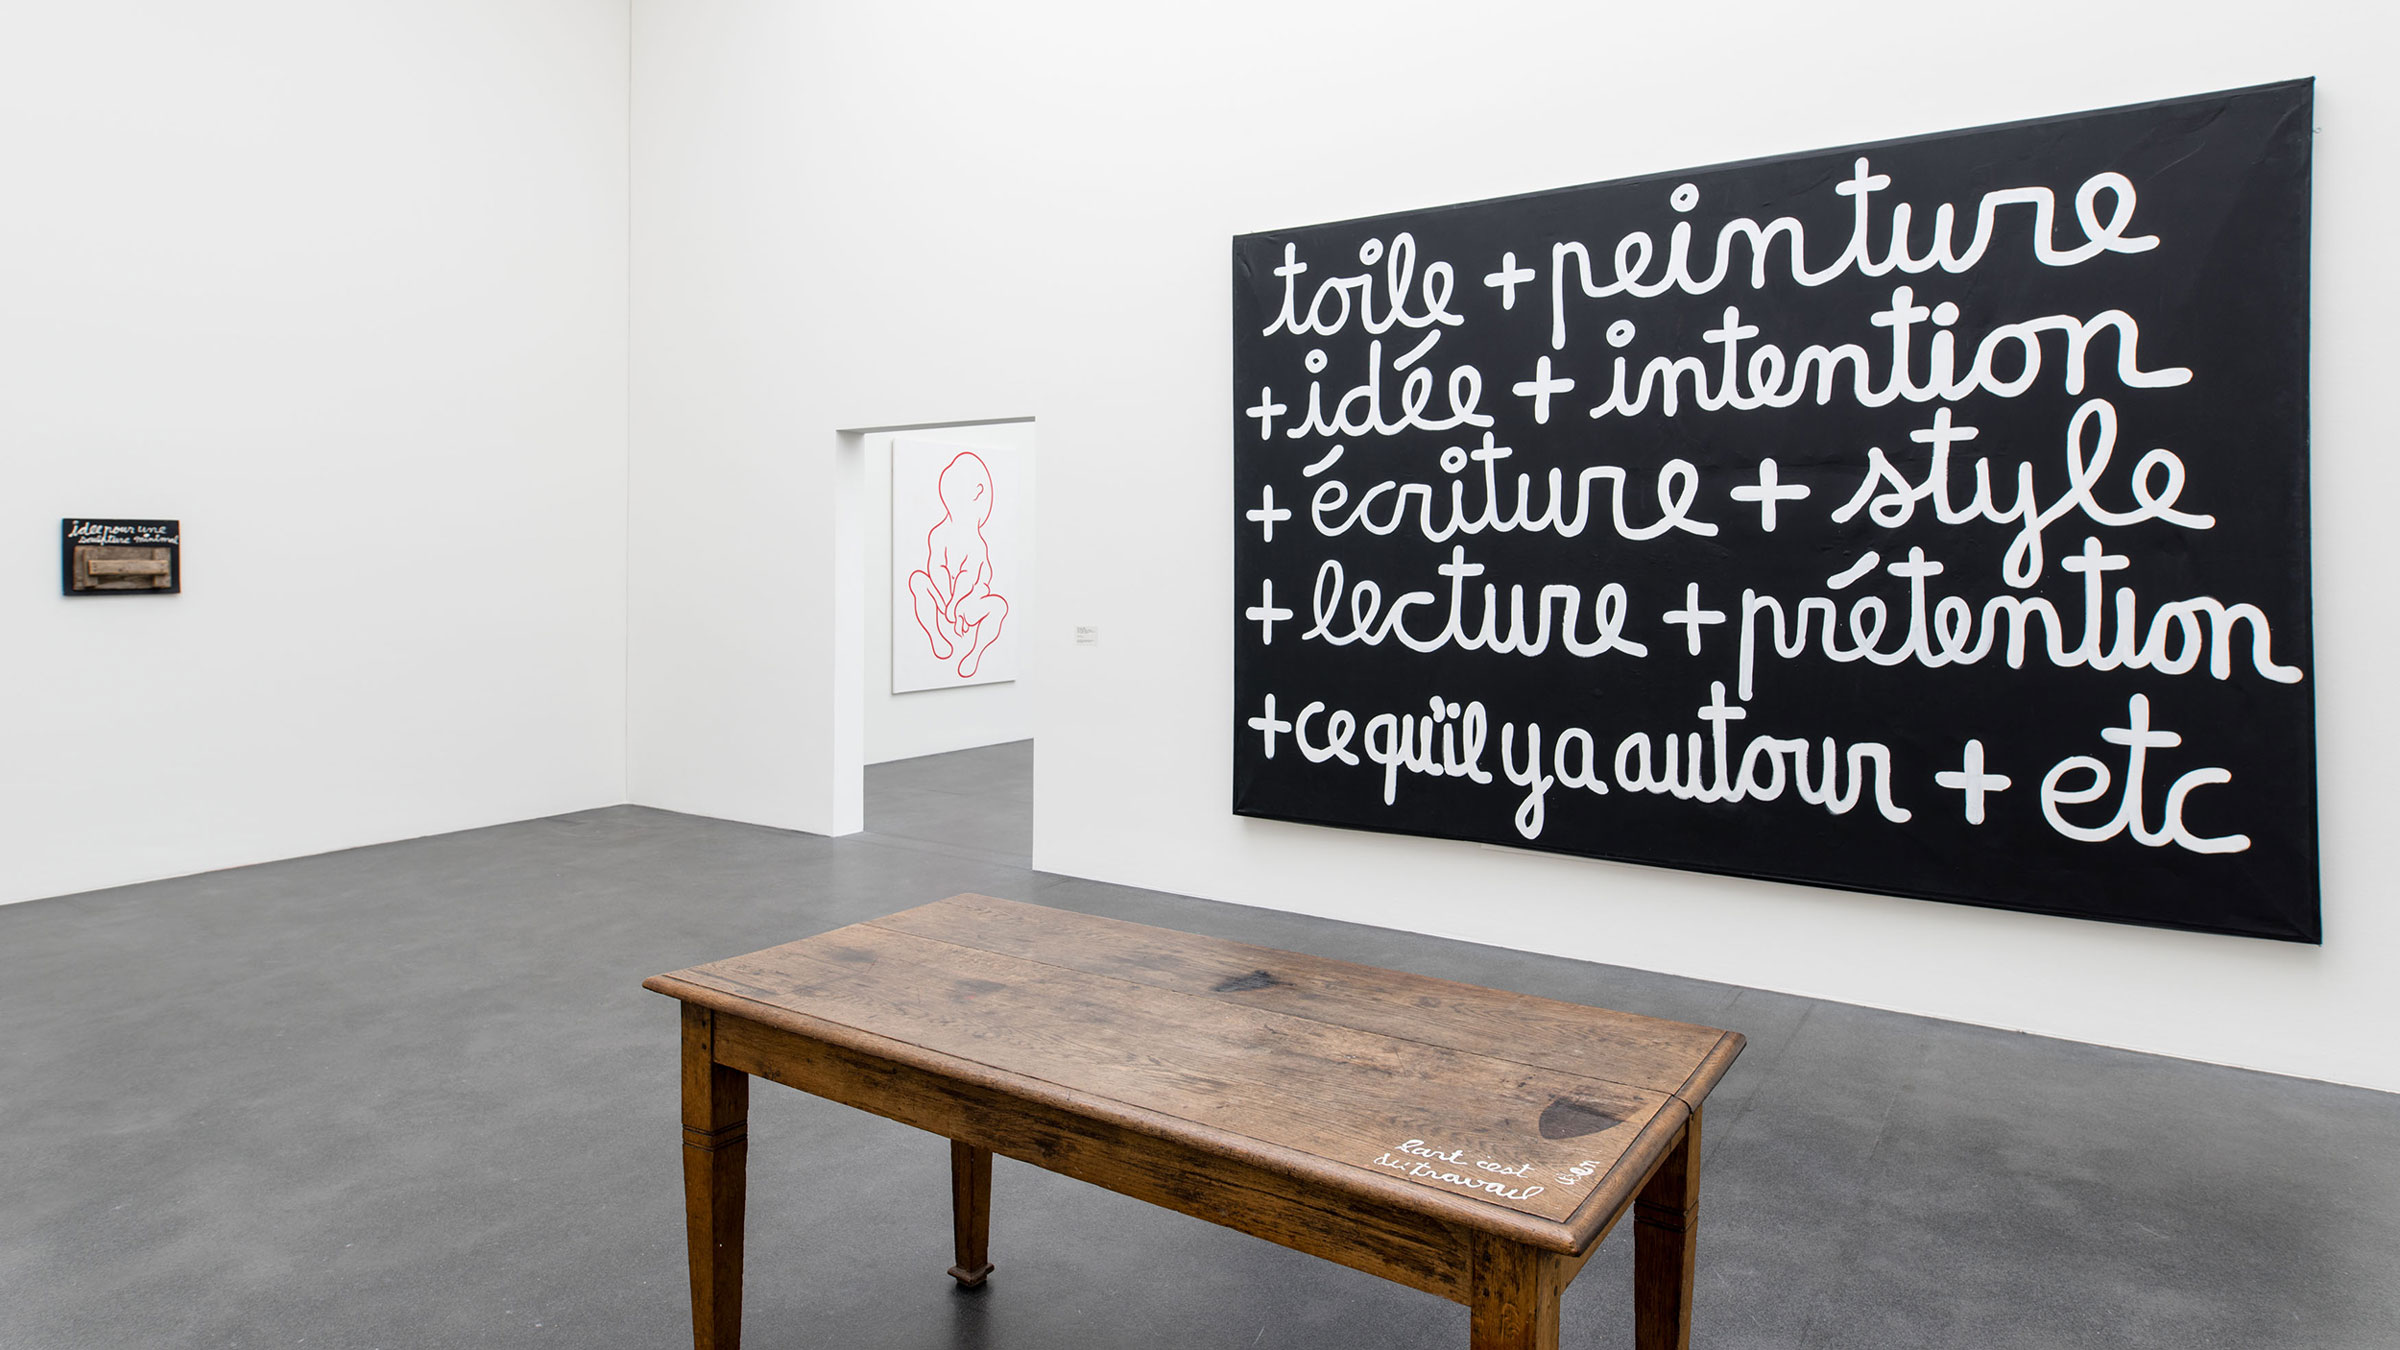 idée pour une
sculpture minimal
toile + peinture
+ idée + intention
+ écriture + style
+ lecture + prétention
+ ce qu'il y a autour + etc
l'art c'est
du travail
Ben